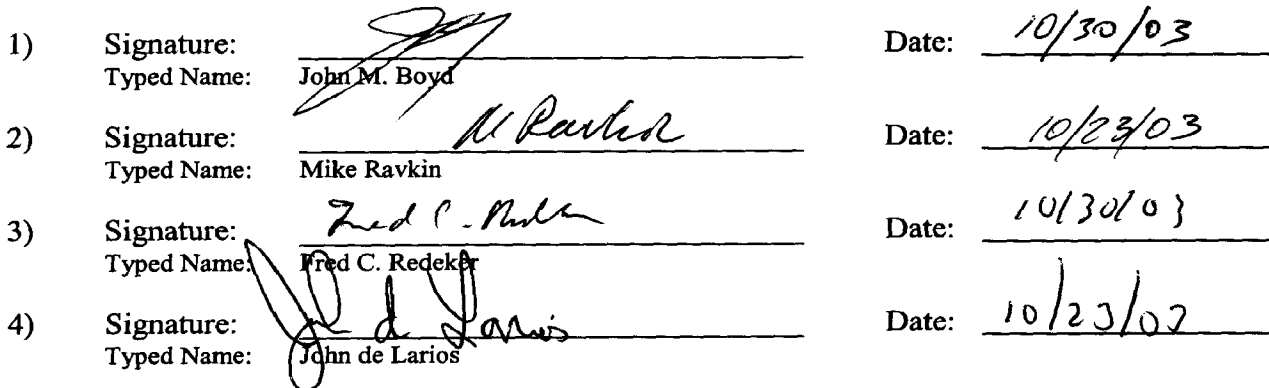 1) Signature: Date: 10/30/03
Typed Name: John M. Boyd
2) Signature: M Ravkin Date: 10/23/03
Typed Name: Mike Ravkin
3) Signature: Fred C. Date: 10/30/03
Typed Name: Fred C. Redeker
4) Signature: John de Larios Date: 10/23/03
Typed Name: John de Larios